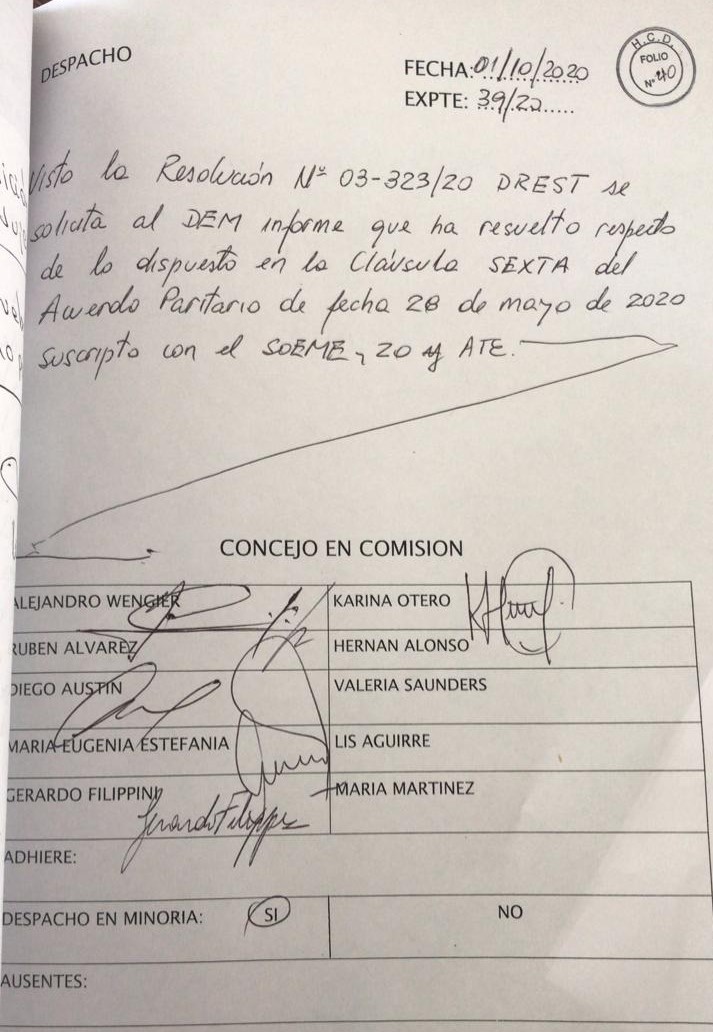 DESPACHO
FECHA: 01/10/2020
EXPTE: 39/20
H.C.D.
FOLIO
Nº 40
Visto la Resolución Nº 03-323/20 DREST se
solicita al DEM informe que ha resuelto respecto
de lo dispuesto en la Cláusula SEXTA del
Acuerdo Paritario de fecha 28 de mayo de 2020
suscripto con el SOEME y ATE.
CONCEJO EN COMISION
ALEJANDRO WENGIER
KARINA OTERO
RUBEN ALVAREZ
HERNAN ALONSO
DIEGO AUSTIN
VALERIA SAUNDERS
MARIA EUGENIA ESTEFANIA
LIS AGUIRRE
GERARDO FILIPPINI
MARIA MARTINEZ
ADHIERE:
DESPACHO EN MINORIA: SI NO
AUSENTES: